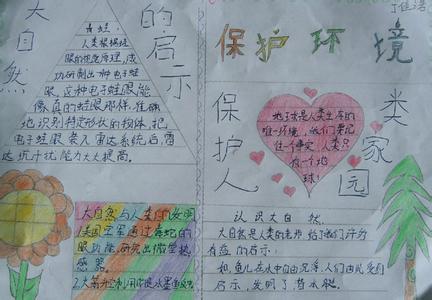 大自然的启示
青蛙
人类根据蛙
眼的视觉原理,成
功研制出一种电子蛙
眼,这种电子蛙眼能
像真的蛙眼那样,准确
地识别特定形状的物体,把
电子蛙眼装入雷达系统后,雷
达抗干扰能力大大提高。
大自然与人类的发明
1.美国空军通过毒蛇的
眼功能,研究出微型热
感器。
保护环境
保护人类家园
地球是人类生存的
唯一环境,我们要记
住一个事实:人类只
有一个地
球!
认识大自然
大自然是人类的老师,给了我们许多
有益的启示:
如:鱼儿在水中自由沉浮,人们由此受到
启示,发明了潜水艇。